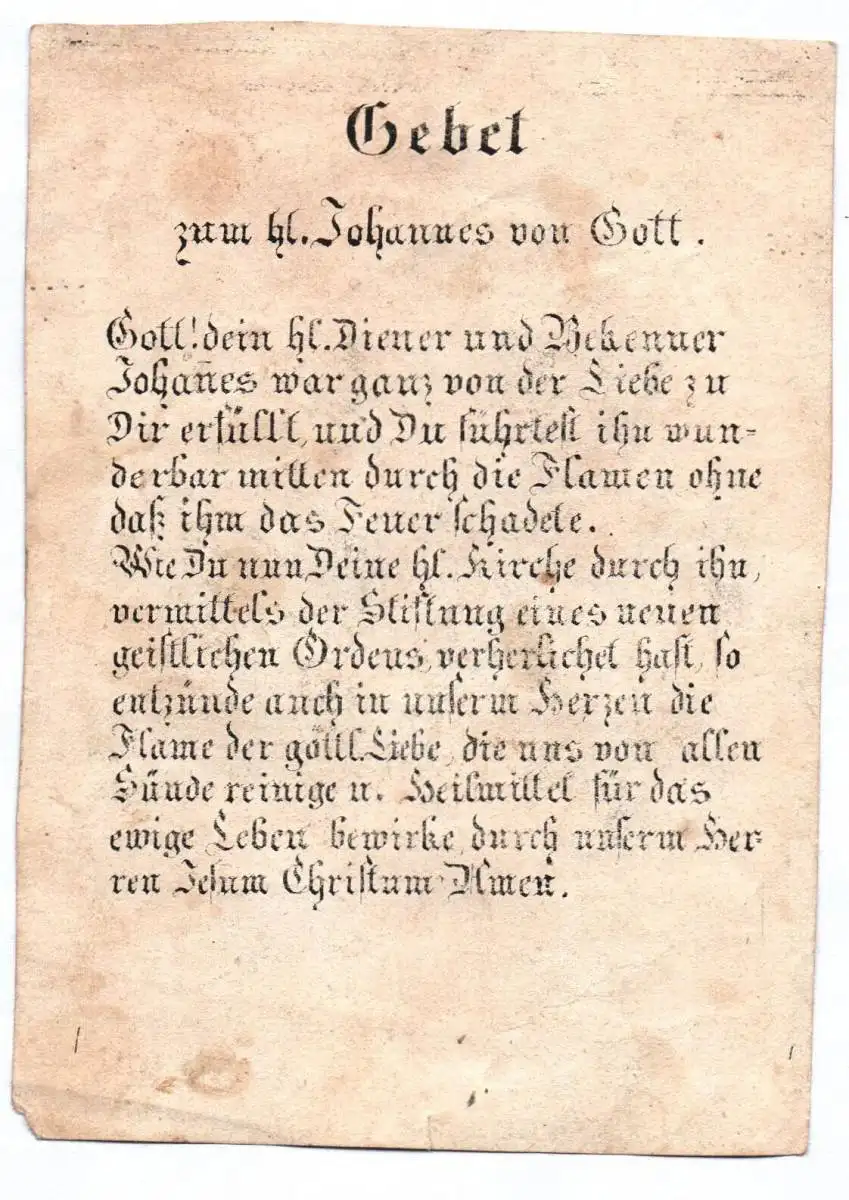 Gebet
zum hl. Johannes von Gott.
Gott! dein hl. Diener und Bekenner
Johan̄es war ganz von der Liebe zu
Dir erfüllt, und Du führtest ihn wun-
derbar mitten durch die Flamen ohne
daß ihm das Feuer schadete.
Wie Du nun Deine hl. Kirche durch ihn,
vermittels der Stiftung eines neuen
geistlichen Ordens, verherlichet hast, so
entzünde auch in unserm Herzen die
Flame der göttl. Liebe, die uns von allen
Sünde reinige u. Heilmittel für das
ewige Leben bewirke, durch unserm Her-
ren Jesum Christum Amen.